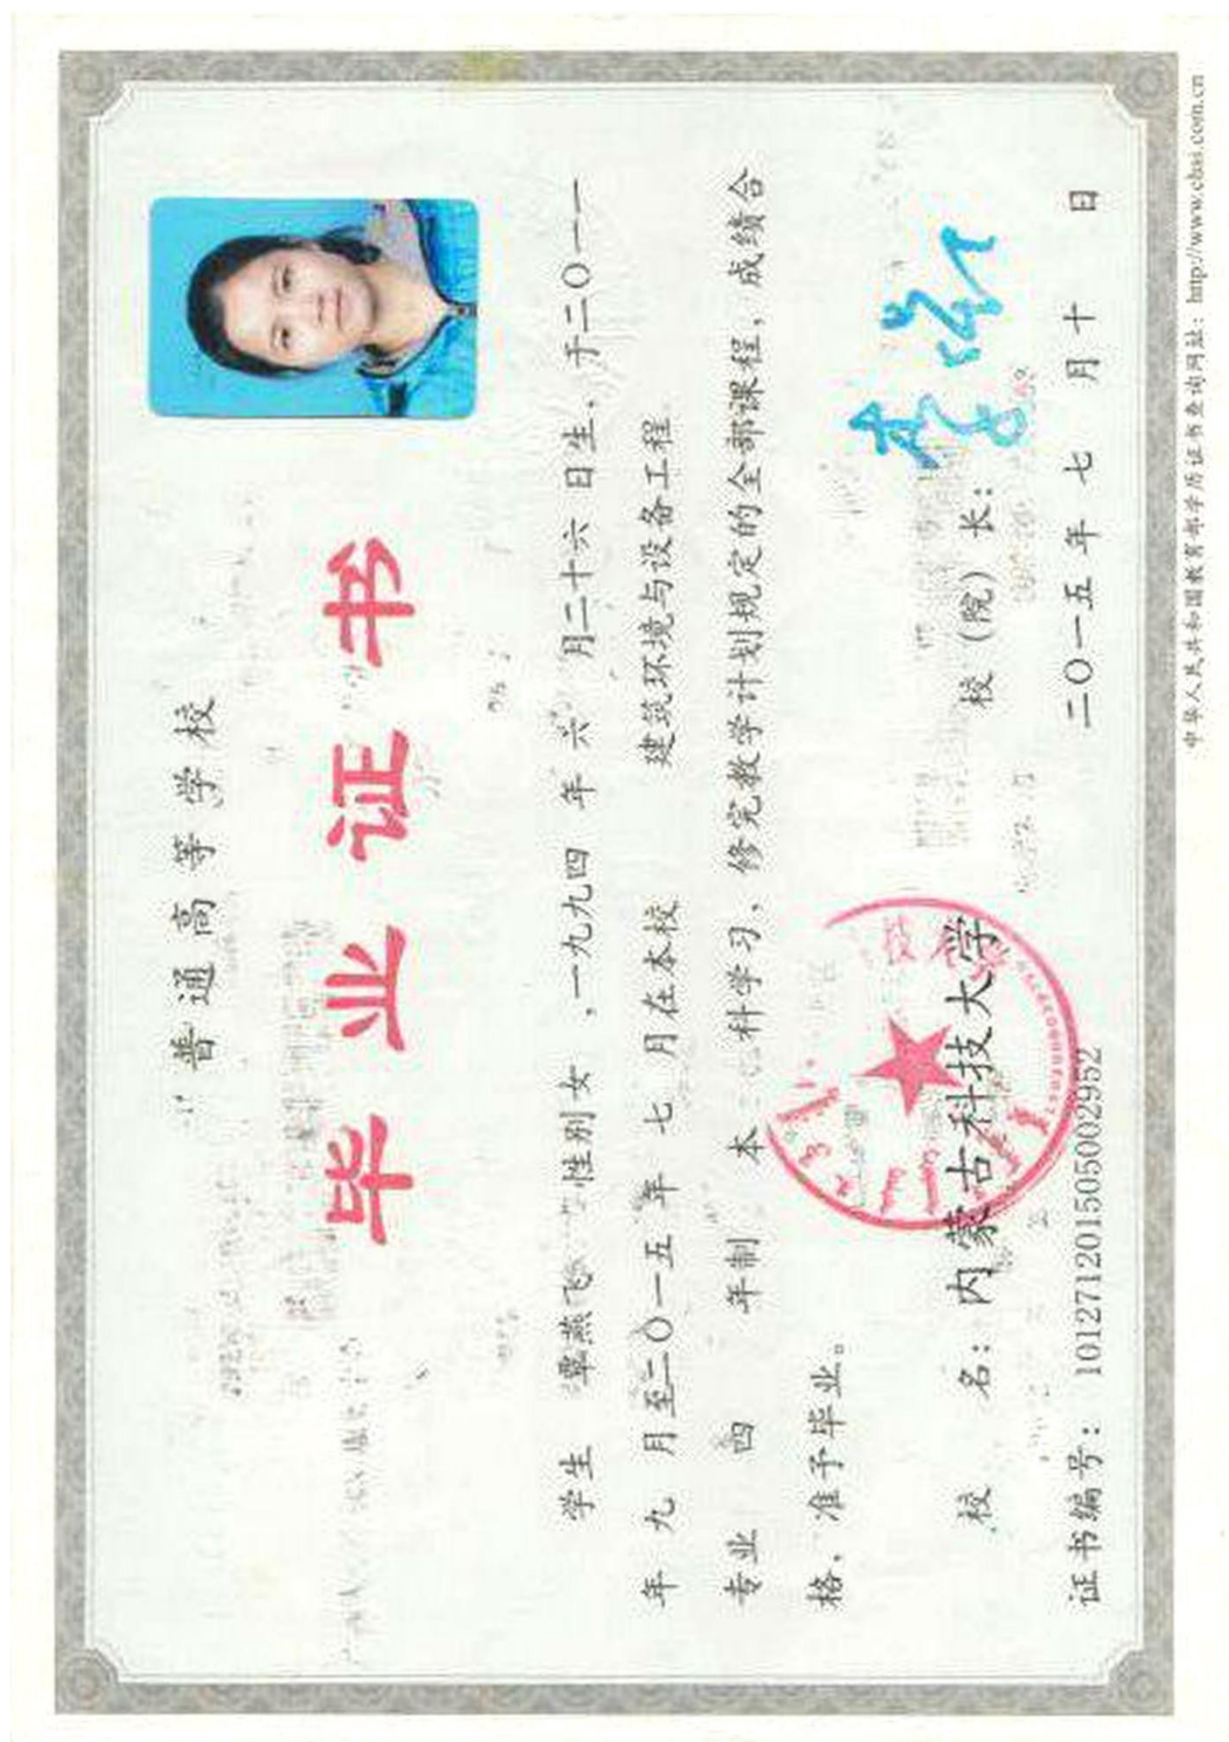 普通高等学校
毕业证书
学生 覃燕飞 性别女，一九九四年 六 月二十六日生，于二〇一一
年 九 月至二〇一五年 七 月在本校 建筑环境与设备工程
专业 四 年制 本 科学习，修完教学计划规定的全部课程，成绩合
格，准予毕业。
校 名：内蒙古科技大学 校（院）长：
证书编号：101271201505002952 二〇一五年 七 月 十 日
中华人民共和国教育部学历证书查询网址：http://www.chsi.com.cn